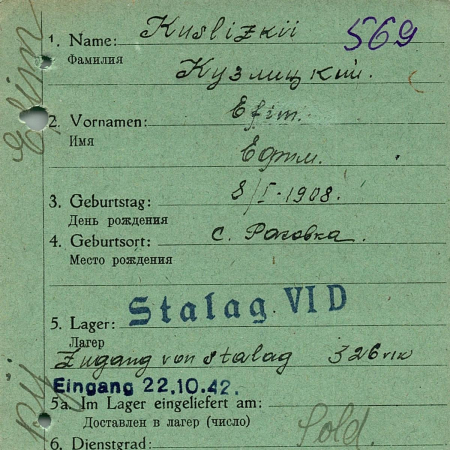 1. Name: Kuslizkii 569
Фамилия Кузлицкий.
2. Vornamen: Efim.
Имя Ефим.
3. Geburtstag: 8/I-1908.
День рождения
4. Geburtsort: с. Роговка.
Место рождения
Stalag VI D
5. Lager:
Лагерь
Zugang von Stalag 326 VIK
Eingang 22.10.42.
5a. Im Lager eingeliefert am:
Доставлен в лагерь (число)
Sold.
6. Dienstgrad:
Efim